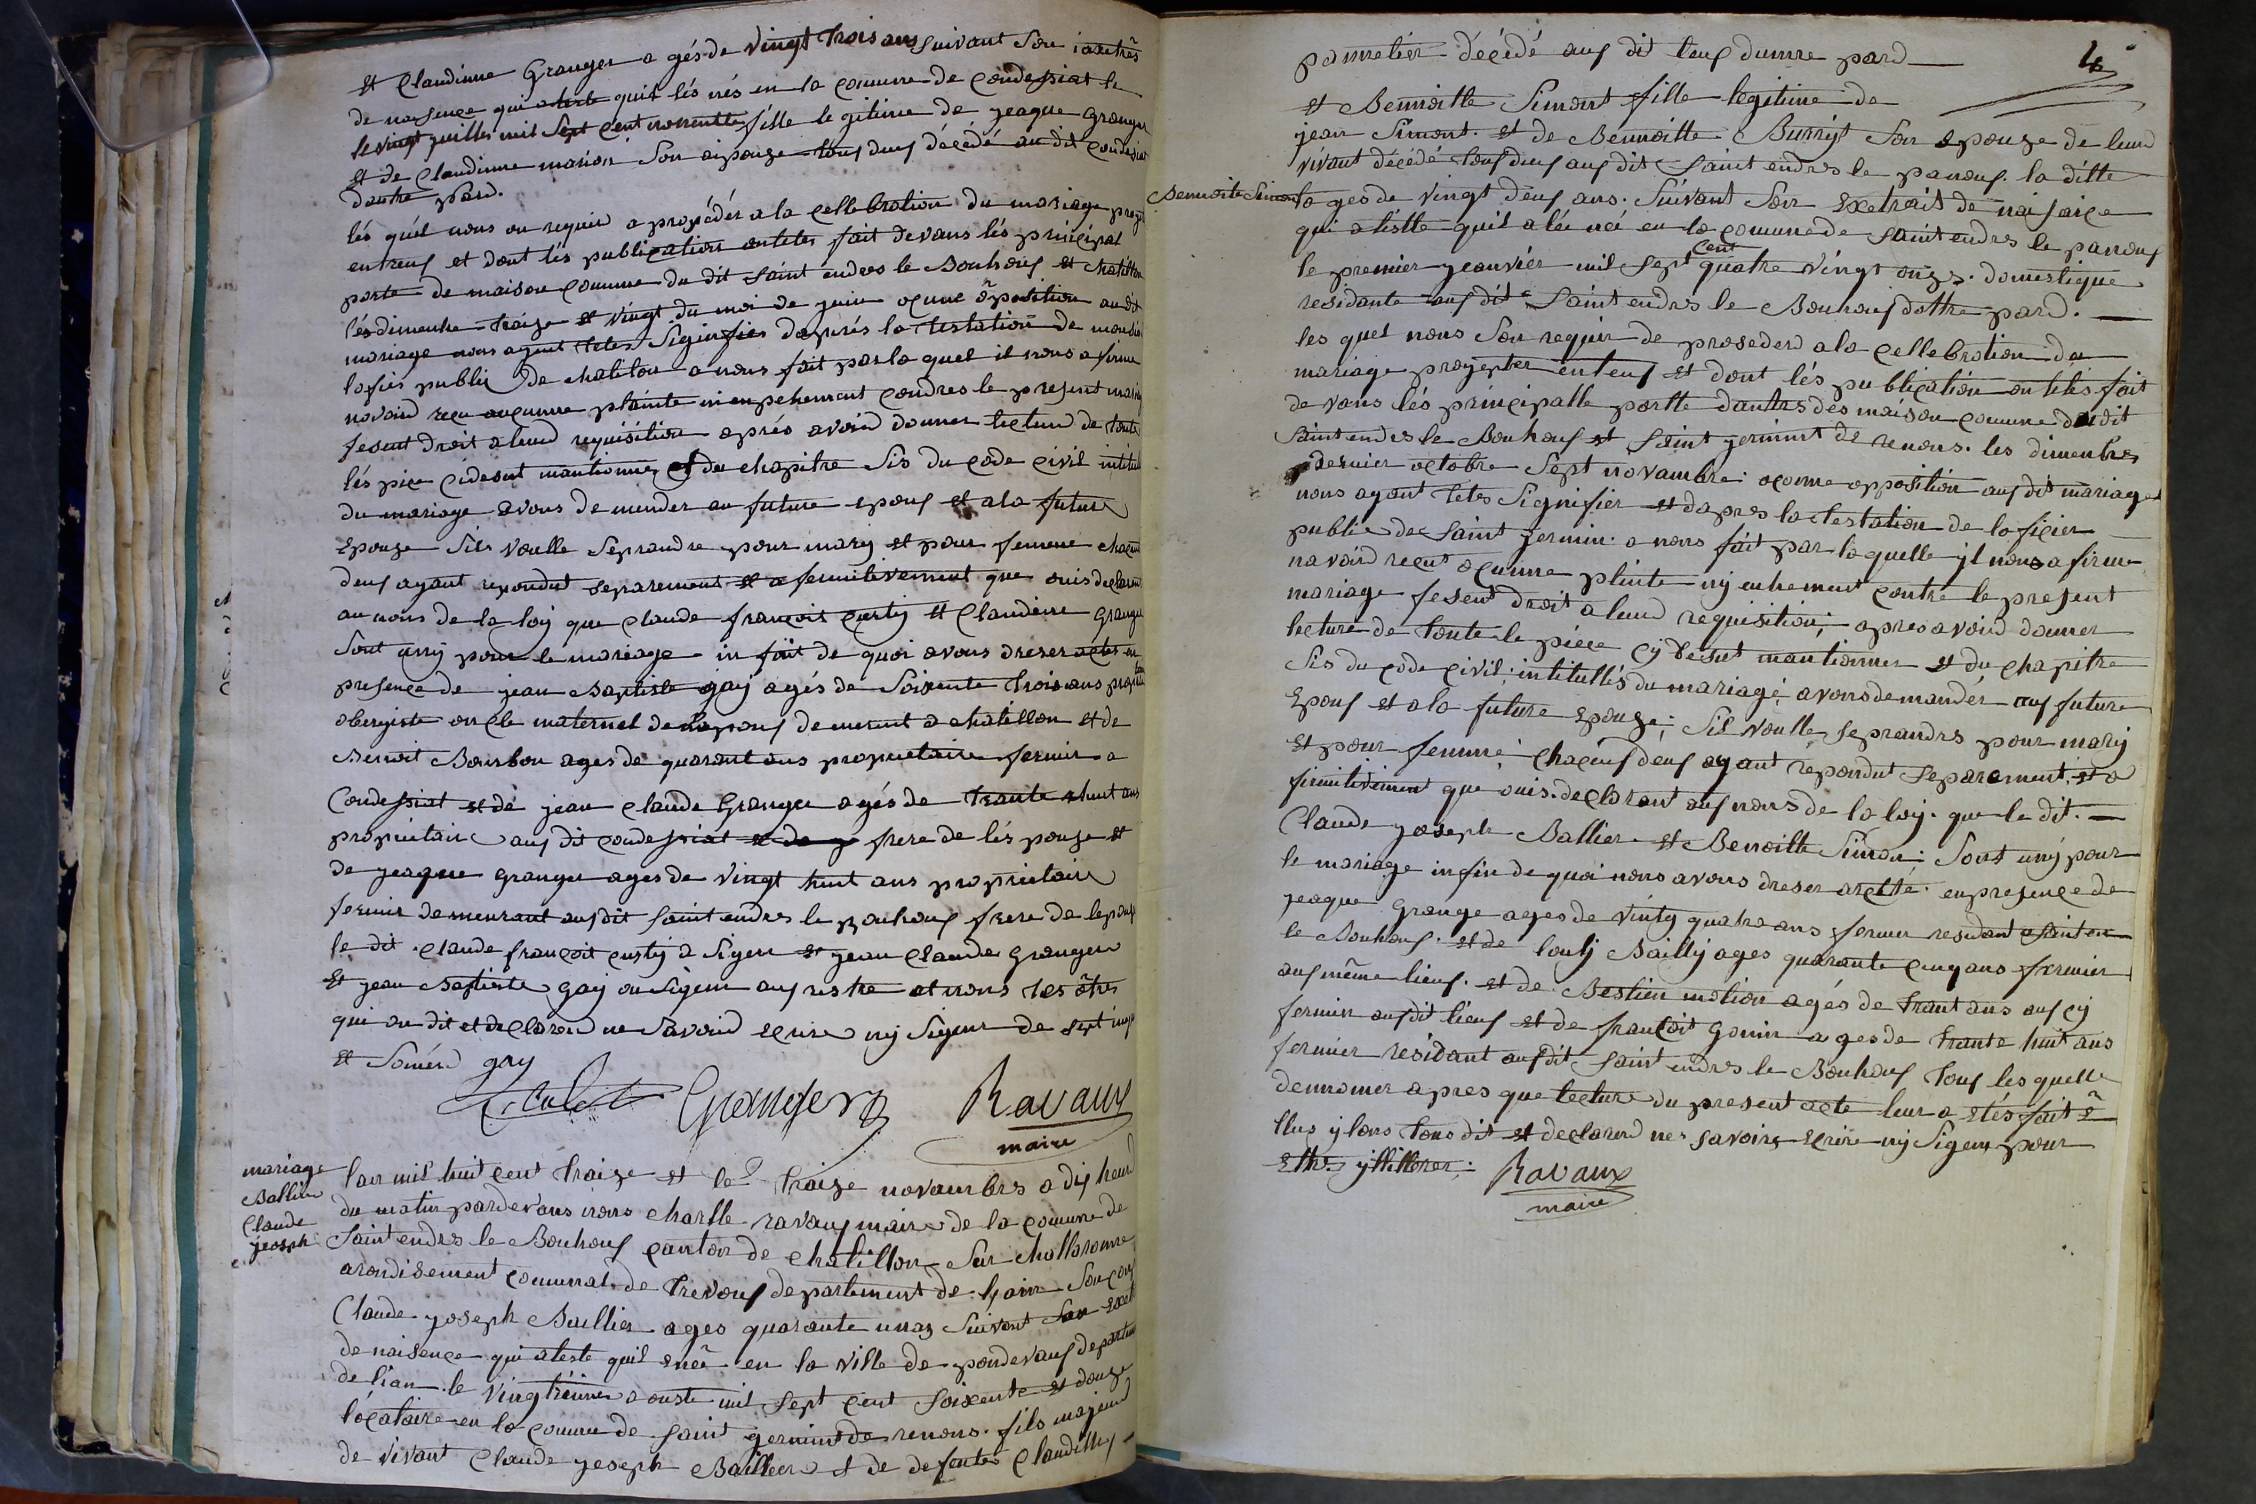 et Claudinne Granger a gés de vingt trois ans suivant son
de naisence qui ateste quil lés nés en la comune de condessiat le
le vingt juillet mil sept cent nonentte fille le gitime de jeaque Granger
et de Claudinne marion son aipouze tous deus décédé au dit condesiat
dautre pard.
lés quél nous on requir a procédér a la cellebration du mariage
entreus et dont lés publication ontetes fait devans lés principal
porte de maison comune du dit saint endres le Bouhous et chatillon
lés dimenche traize et vingt du moi de juin ocune ôposition audit
mariage nous ayent etes Siginfier daprés latestation de
lofisié public de chatilon a nous fait par la quel il nous a firme
navoird reçu aucunne plainte ni enpechement condres le present
fesent droit a leurd requisition aprés avoird donner lecturd de toute
lés piece cidesut mantionnez et du chapitre sis du code civil
du mariage avons demender au future epous et ala future
Epouze Sils voulle seprandre pour mary et pour femme
deus ayant repondut separement et afermitivement que ouis
au nons de la loy que Claude françoit custy et Claudine Granger
Sont uny pour le mariage in foit de quoi avons dreser
presence de jean Baptiste gay agés de Soixente trois ans
obergiste oncle maternel de lepous demeurent a chatéllon et de
Benoit Bourbon ages de quarant ans proprietaire fermir a
Condessiat et de jean claude Granger agés de trante huit ans
proprietaire aus dit condessiat et de j frere de lés pouze et
de jeaque granger ages de vingt huit ans proprietaire
fermir demeurant ausdit saint endres le bouhous frere de lepous
le dit claude françoit custy a Sigen et jean Claude Granger
Et jean Baptiste gay on Sigenn aus restre et nons les ôtres
qui on dit et declarerd ne Savoird ecrire ny Sigenr de
gay
Granger Ravaux
maire
mariage
Ballier
Claude
jeosph
lan mil huit cent traize et le traize novambrs a dix heurd
du matin pardevans nous charlle ravaus maire de la comune de
Saint endrs le Bouhous canton de Chatillon Sur Challaronne
arondisement communal de trevous departement de lain
Claude yoseph Ballier ages quarante unaz Suivant Son
de naisence qui ateste quil enée en la ville de pondevaus
de lian le vingtiéme a ouste mil sept cent soixente et douze
locataire en la comune de saint germint de renons fils majeurd
de vivant Claude yeseph Ballier et de defentes Claudille
4
pannetier décédé aus dit leus dunne pard
et Bennoitte Simont fille legitime de
jean Simont et de Bennoitte Son epouze de leurd
vivant décédé tous deus aus dit saint endres le panous la ditte
Bennoite Simon
a ges de vingt deus ans Suivant Son Extrait de naisance
qui atiste quil a lée née en la comune de saint endres le panous
le premier jeanvier mil sept cent quatre vingt onze domestique
residante aus dit Saint endres le Bouhous dottre pard.
les quel nous Son requir de prosederd ala cellebration du
mariage proyepter enteus et dont lés publication on tetés fait
de vans lés principalle portte dantrs des maison comune du dit
Saint endes le Bouhous et saint germint de renons les dimenhes
dernier octobre Sept novambre ocunne opposition aus dit mariage
nous ayant tetes Signifier et dapres latestation de lofisier
public de saint jermin a nous fait par la quelle yl nous afirme
navoird reçut ocunne plinte ny enhement contre le present
mariage fesent droit a leurd requisition apres avoird donner
lecture de toute le piece cy desut mantionner et du chapitre
Sis du code civil intitullés du mariage avons demandér aus future
Epous et ala future Epouze; Sil voulle seprandrs pour mary
et pour femme chacuns deus ayant repondut separement et a
firmitivement que ouis declarant aus nons de la loy que le dit
Claude yoseph Ballier et Benoitte Simon Sont uny pour
le mariage infin de quoi nous avons dreser arctte en presence de
jeaque Grange ages de vinty quatre ans fermier residant a Saint en
le Bouhous et de louly Bailly ages quarante cinq ans fermier
aus même lieus et de Bestien molion agés de trant ans aus cy
fermier aus dit lieus et de françoit Gonin a ges de trante huit ans
fermier residant aus dit Saint endres le Bouhous tous les quelle
dennomer apres que lecture du present acte leur a etés fait
et declarerd nes savoirs ecrire ny Sigenr pour
Ravaux
maire